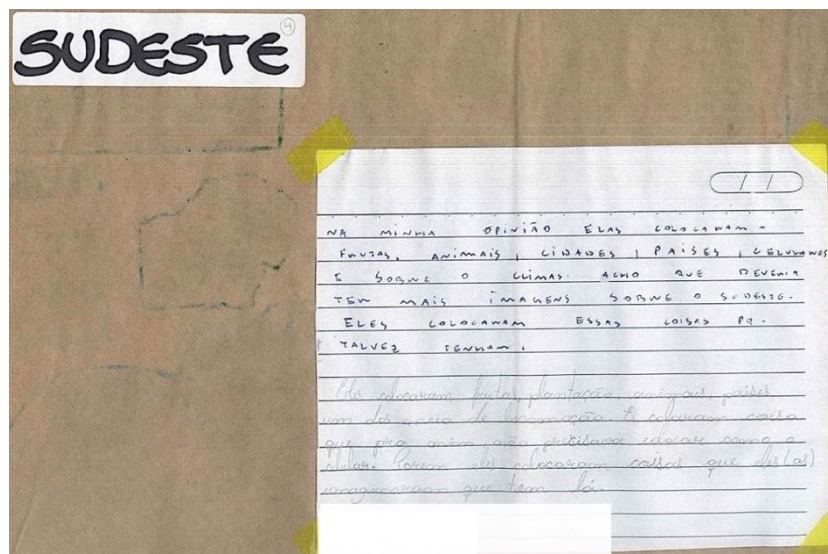 SUDESTE
4
/ /
NA MINHA OPINIÃO ELAS COLOCARAM -
FRUTAS, ANIMAIS, CIDADES, PAÍSES, CELULARES
E SOBRE O CLIMAS. ACHO QUE DEVERIA
TER MAIS IMAGENS SOBRE O SUDESTE.
ELES COLOCARAM ESSAS COISAS PQ.
TALVEZ TENHAM.
Eles colocaram frutas, plantação, animais, países
um dos meio de locomoção. E colocaram coisa
que pra mim não precisava colocar como o
celular. Porem eles colocaram coisas que eles(as)
imaginaram que tem lá.